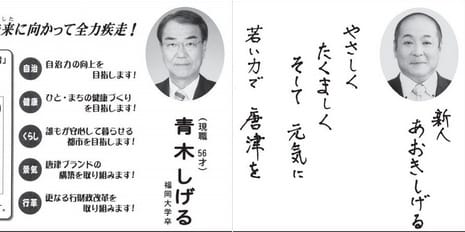 未来に向かって全力疾走！
自治
自治力の向上を
目指します！
健康
ひと・まちの健康づくり
を目指します！
くらし
誰もが安心して暮らせる
都市を目指します！
景気
唐津ブランドの
構築を取り組みます！
行革
更なる行財政改革を
取り組みます！
（現職 56才）
青木しげる
福岡大学卒
新人
あおきしげる
やさしく
たくましく
そして 元気に
若い力で 唐津を